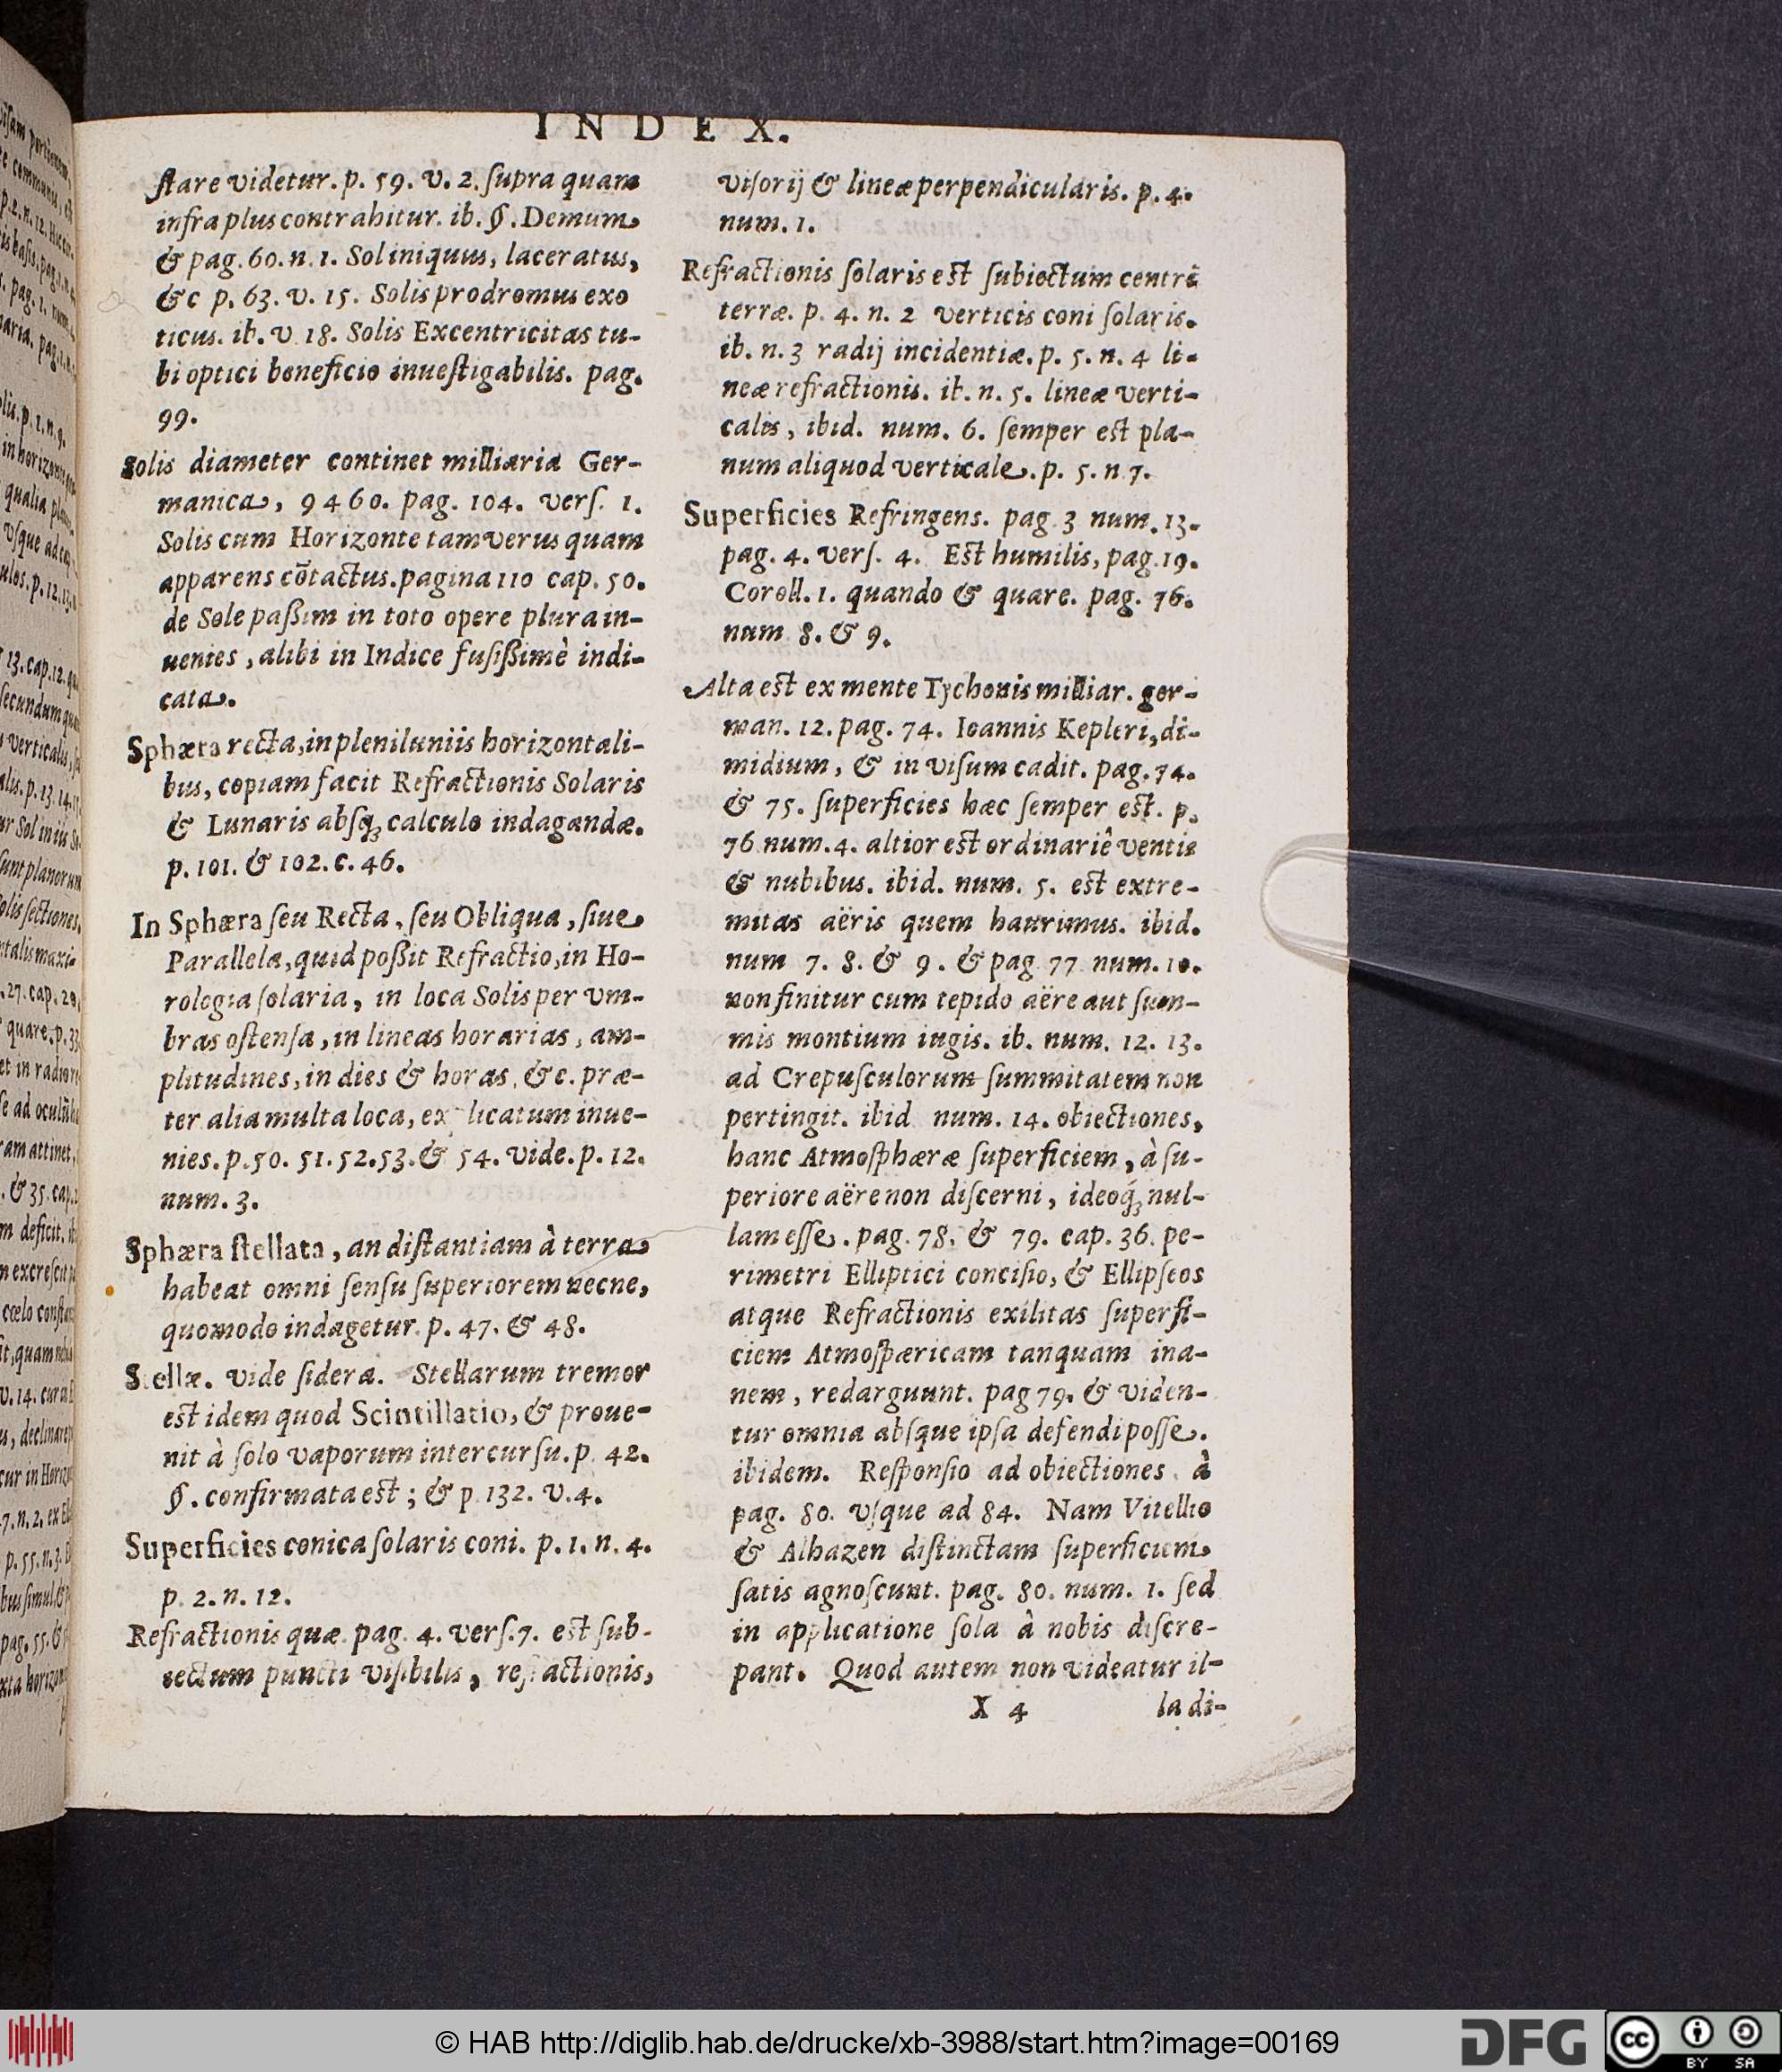 INDEX.
ſtare videtur. p. 59. v. 2. ſupra quam
infra plus contrahitur. ib. §. Demum
& pag. 60. n. 1. Sol iniquus, laceratus,
&c p. 63. v. 15. Solis prodromus exo
ticus. ib. v 18. Solis Excentricitas tu-
bi optici beneficio inueſtigabilis. pag.
99.
Solis diameter continet milliaria Ger-
manica, 9460. pag. 104. verſ. 1.
Solis cum Horizonte tam verus quam
apparens cõtactus. pagina 110 cap. 50.
de Sole paßim in toto opere plura in-
uenies, alibi in Indice fuſißimè indi-
cata.
Sphæra recta, in pleniluniis horizontali-
bus, copiam facit Refractionis Solaris
& Lunaris abſq; calculo indagandæ.
p. 101. & 102. c. 46.
In Sphæra ſeu Recta, ſeu Obliqua, ſiue
Parallela, quid poßit Refractio, in Ho-
rologia ſolaria, in loca Solis per vm-
bras oſtenſa, in lineas horarias, am-
plitudines, in dies & horas, &c. præ-
ter alia multa loca, ex licatum inue-
nies. p. 50. 51. 52. 53. & 54. vide. p. 12.
num. 3.
Sphæra ſtellata, an diſtantiam à terra
habeat omni ſenſu ſuperiorem necne,
quomodo indagetur. p. 47. & 48.
S ellæ. vide ſidera. Stellarum tremor
est idem quod Scintillatio, & proue-
nit à ſolo vaporum intercurſu. p. 42.
§. confirmata est; & p. 132. v. 4.
Superficies conica ſolaris coni. p. 1. n. 4.
p. 2. n. 12.
Refractionis quæ. pag. 4. verſ. 7. est ſub-
iectum puncti viſibilis, refractionis,
viſorij & lineæ perpendicularis. p. 4.
num. 1.
Refractionis ſolaris est ſubiectum centrũ
terræ. p. 4. n. 2 verticis coni ſolaris.
ib. n. 3 radij incidentiæ. p. 5. n. 4 li-
neæ refractionis. ib. n. 5. lineæ verti-
calis, ibid. num. 6. ſemper est pla-
num aliquod verticale. p. 5. n 7.
Superficies Refringens. pag 3 num. 13.
pag. 4. verſ. 4. Est humilis, pag. 19.
Coroll. 1. quando & quare. pag. 76.
num 8. & 9.
Alta est ex mente Tychonis milliar. ger-
man. 12. pag. 74. Ioannis Kepleri, di-
midium, & in viſum cadit. pag. 74.
& 75. ſuperficies hæc ſemper est. p.
76 num. 4. altior est ordinariè ventis
& nubibus. ibid. num. 5. est extre-
mitas aëris quem haurimus. ibid.
num 7. 8. & 9. & pag 77 num. 10.
non finitur cum tepido aëre aut ſum-
mis montium iugis. ib. num. 12. 13.
ad Crepuſculorum ſummitatem non
pertingit. ibid num. 14. obiectiones,
hanc Atmoſphæræ ſuperficiem, à ſu-
periore aëre non diſcerni, ideoq́; nul-
lam eſſe. pag. 78. & 79. cap. 36. pe-
rimetri Elliptici conciſio, & Ellipſeos
atque Refractionis exilitas ſuperfi-
ciem Atmoſpæricam tanquam ina-
nem, redarguunt. pag 79. & viden-
tur omnia abſque ipſa defendi poſſe.
ibidem. Reſponſio ad obiectiones à
pag. 80. vſque ad 84. Nam Vitellio
& Alhazen diſtinctam ſuperficiem
ſatis agnoſcunt. pag. 80. num. 1. ſed
in applicatione ſola à nobis diſcre-
pant. Quod autem non videatur il-
X 4 la di-
© HAB http://diglib.hab.de/drucke/xb-3988/start.htm?image=00169
DFG
cc BY SA